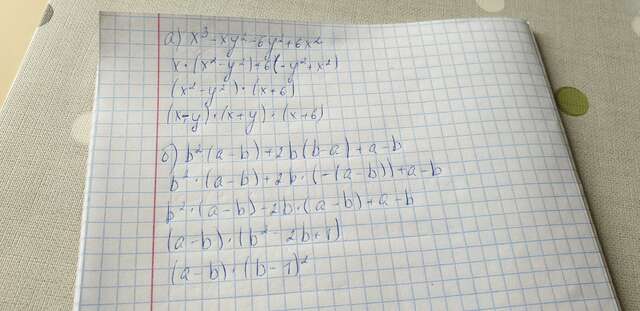 а) x³-xy²-6y²+6x²
x·(x²-y²)+6(-y²+x²)
(x²-y²)·(x+6)
(x-y)·(x+y)·(x+6)
б) b²(a-b)+2b(b-a)+a-b
b²·(a-b)+2b·(-(a-b))+a-b
b²·(a-b)-2b·(a-b)+a-b
(a-b)·(b²-2b+1)
(a-b)·(b-1)²